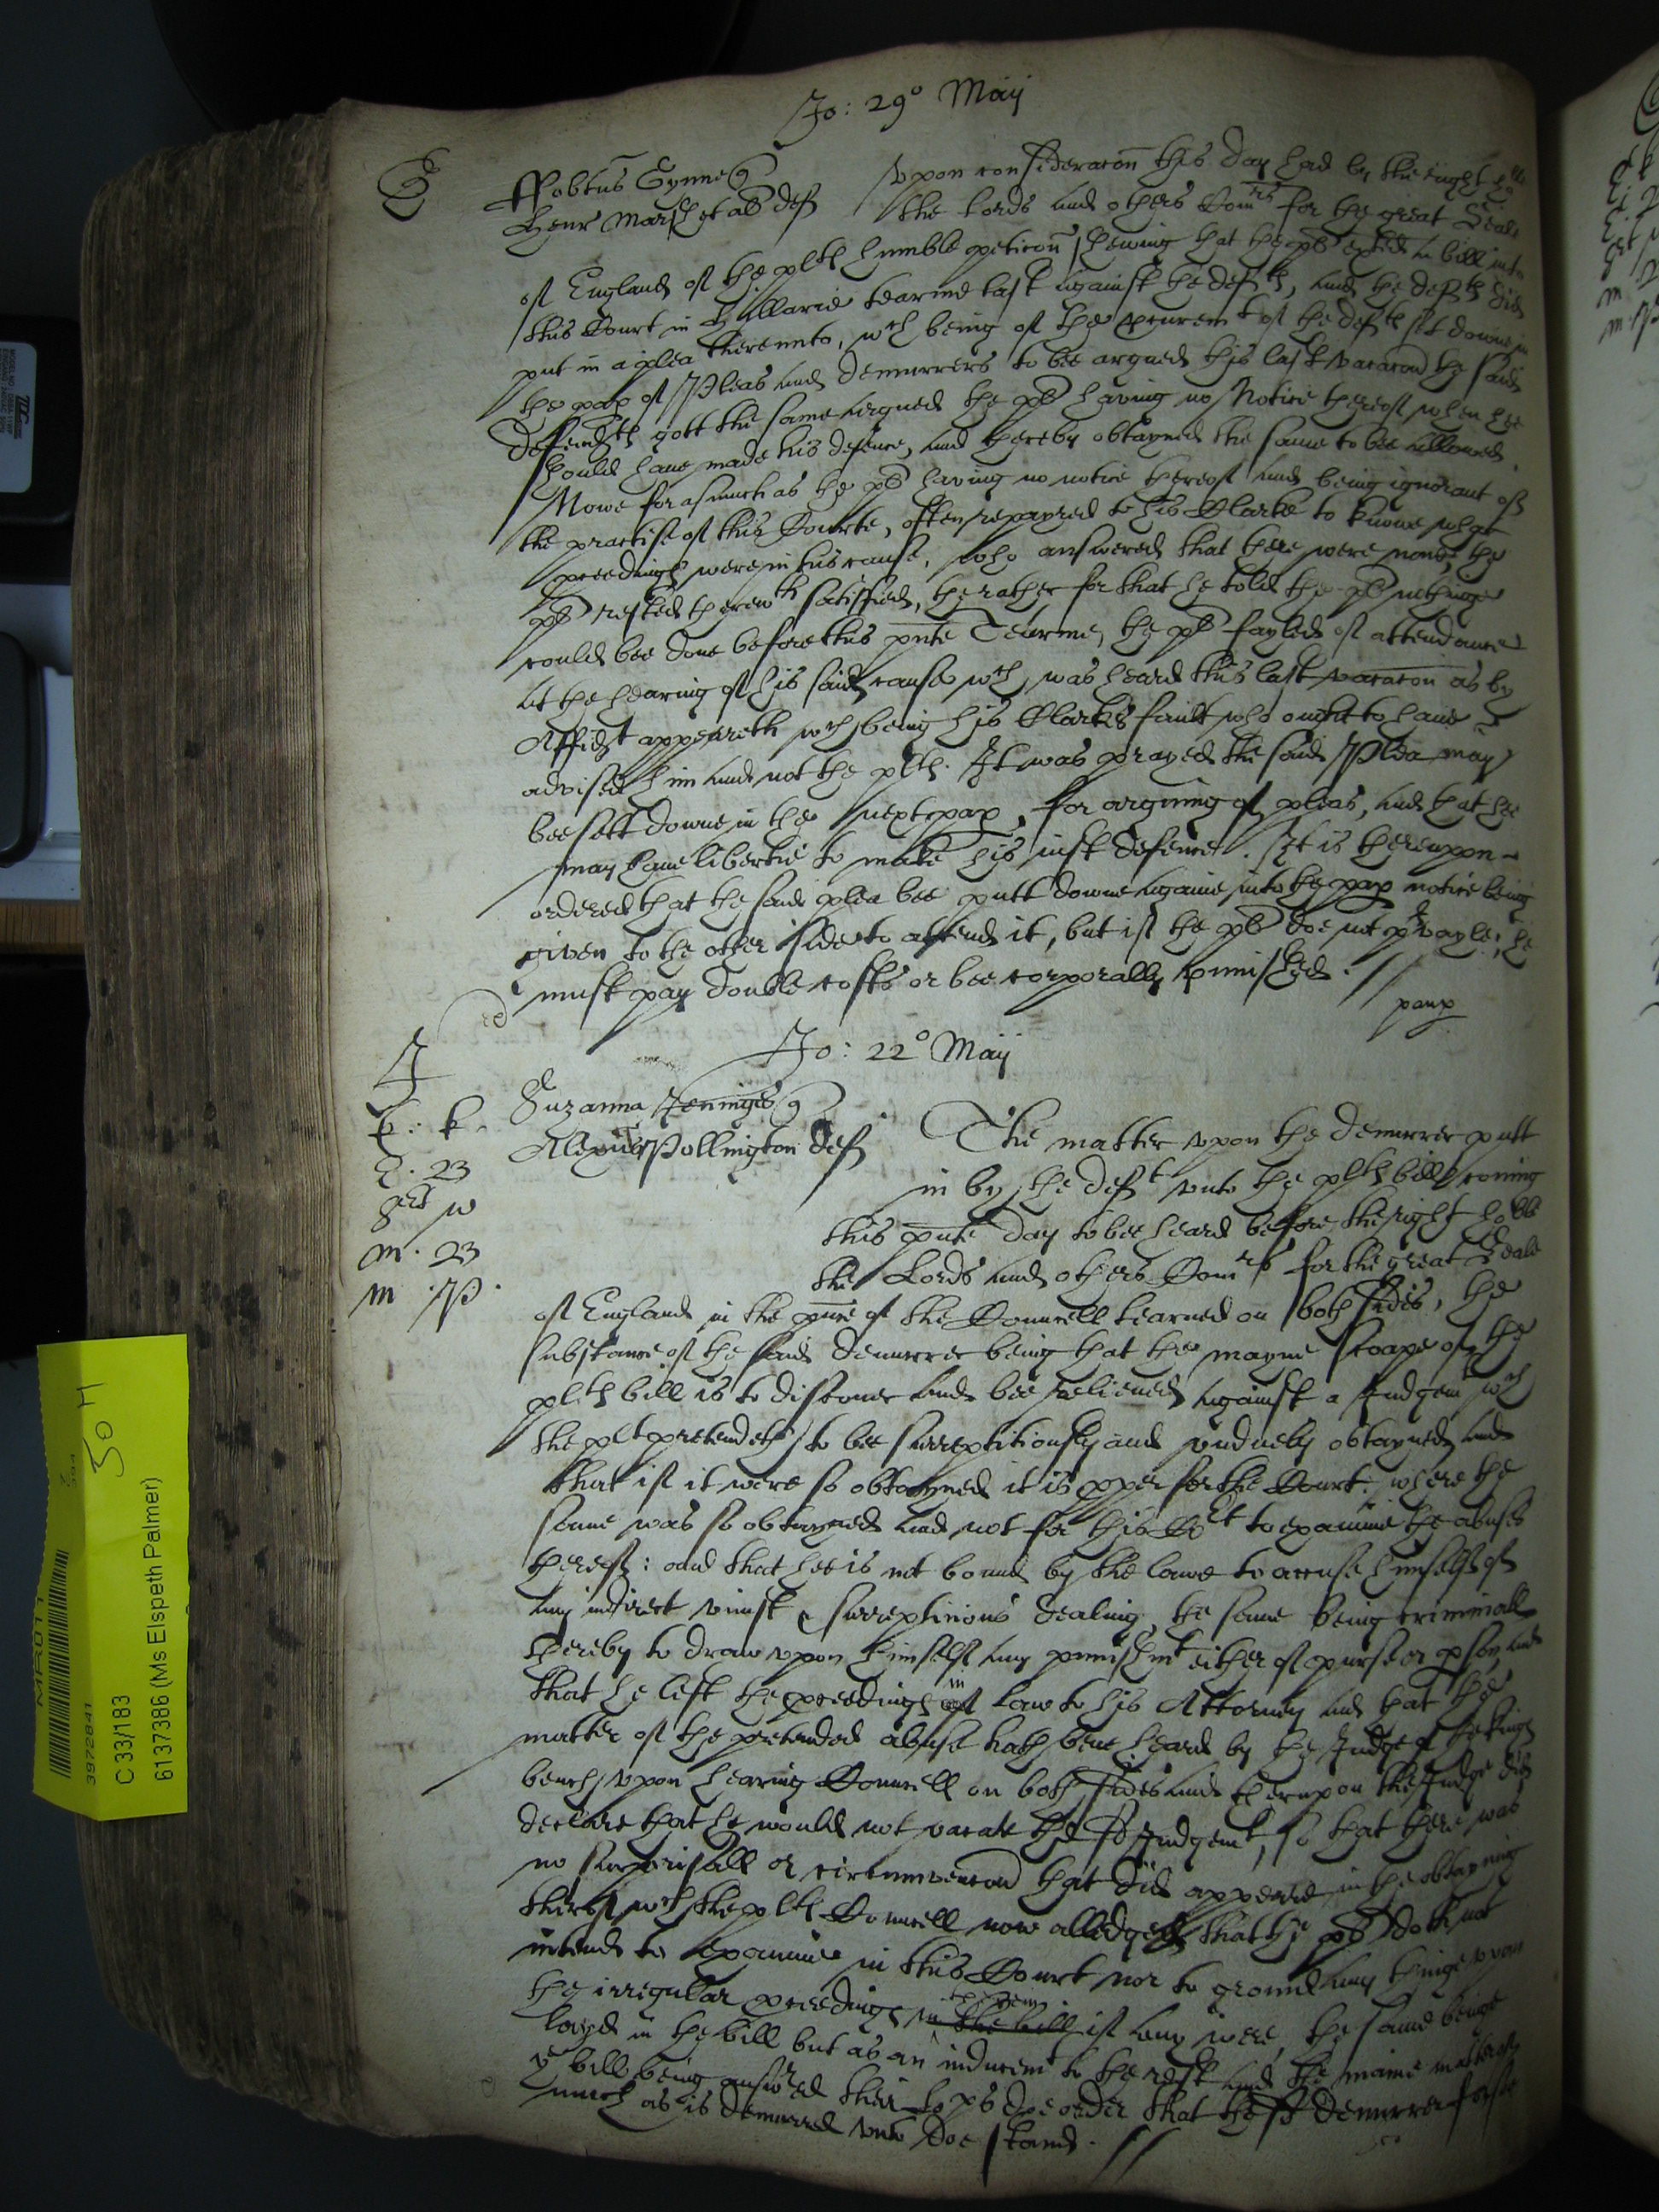 Jo: 29° Maij
Robtus Gynne q
Henr Marsh et al def
Vpon consideracon this day had by the right ho:ble
the Lords and others Comrs for the great Seale
of England of the plts humble peticon shewing that the pl exhted a bill into
this Court in Hillarie tearme last against the defts, and the defts did
put in a plea thereunto, wch being of the procuremt of the defts sett downe in
the pap of Pleas and demurrers to bee argued this last vacacon the said
Defendts gott the same argued the pl having no Notice thereof when hee
should have made his defence, and thereby obtayned the same to bee allowed.
Nowe forasmuch as the pl having no notice thereof and being ignorant of
the practise of this Courte, often repayred to his Clarke to knowe what
pceedings were in his cause, who answered that there were none, the
pl rested therewth satisfied, the rather for that he told the pl nothinge
could bee done before this pnte Tearme, the pl fayled of attendance
at the hearing of his said cause wch was heard this last vacacon as by
Affidt appeareth wch being his Clarkes fault who ought to have
advised him and not the plts. It was prayed the said Plea may
bee sett downe in the next pap, for arguing of pleas, and that he
may have libertie to make his just defence. It is thereupon
ordered that the said plea bee putt downe againe into the pap notice being
given to the other side to attend it, but if the pl doe not pvayle, he
must pay double costs or bee corporally punished.
paup
Jo: 22° Maij
Suzanna Jeninges q
Alexius Pollington def
J
E: k.
E. 23
gtt w
m. 23
m. P.
The matter vpon the demurrer putt
in by the deft vnto the plts bill coming
this pnte day to bee heard before the right ho:ble
the Lords and others Comrs for the great Seale
of England in the pnce of the Councell learned on both sides, the
substance of the said demurrer being that the mayne scoape of the
plts bill is to discover and bee relieved against a Judgemt wch
the plt pretendeth to bee surreptitiously and vnduely obtayned and
that if it were so obtayned it is pper for the Court where the
same was so obtayned and not for this Cort to examine the abuses
thereof: and that hee is not bound by the lawe to accuse himselfe of
any indirect vniust & surreptitious dealing, the same being criminall
thereby to draw vpon himself any punishmt either of purse or pson, and
that he left the pceedings in of law to his Attorney and that the
matter of the pretended abuse hath bene heard by the Judge of the kings
bench vpon hearing Councell on both sides and therevpon the Judge did
declare that he would not vacate the sd Judgemt, so that there was
no surprisall or circumvencon that did appeare in the obtayning
thereof wch the plts Councell now alledged that the pl doth not
intend to examine in this Court nor to ground any thinge vpon
the irregular pceedings in the bill if any were, the same being
layd in the bill but as an inducemt to the rest and the maine matter of
ye bill being answered their Lo:ps doe order that the sd demurrer for so
much as is demurred vnto doe stand.
3972841
C 33/183
6137386 (Ms Elspeth Palmer)